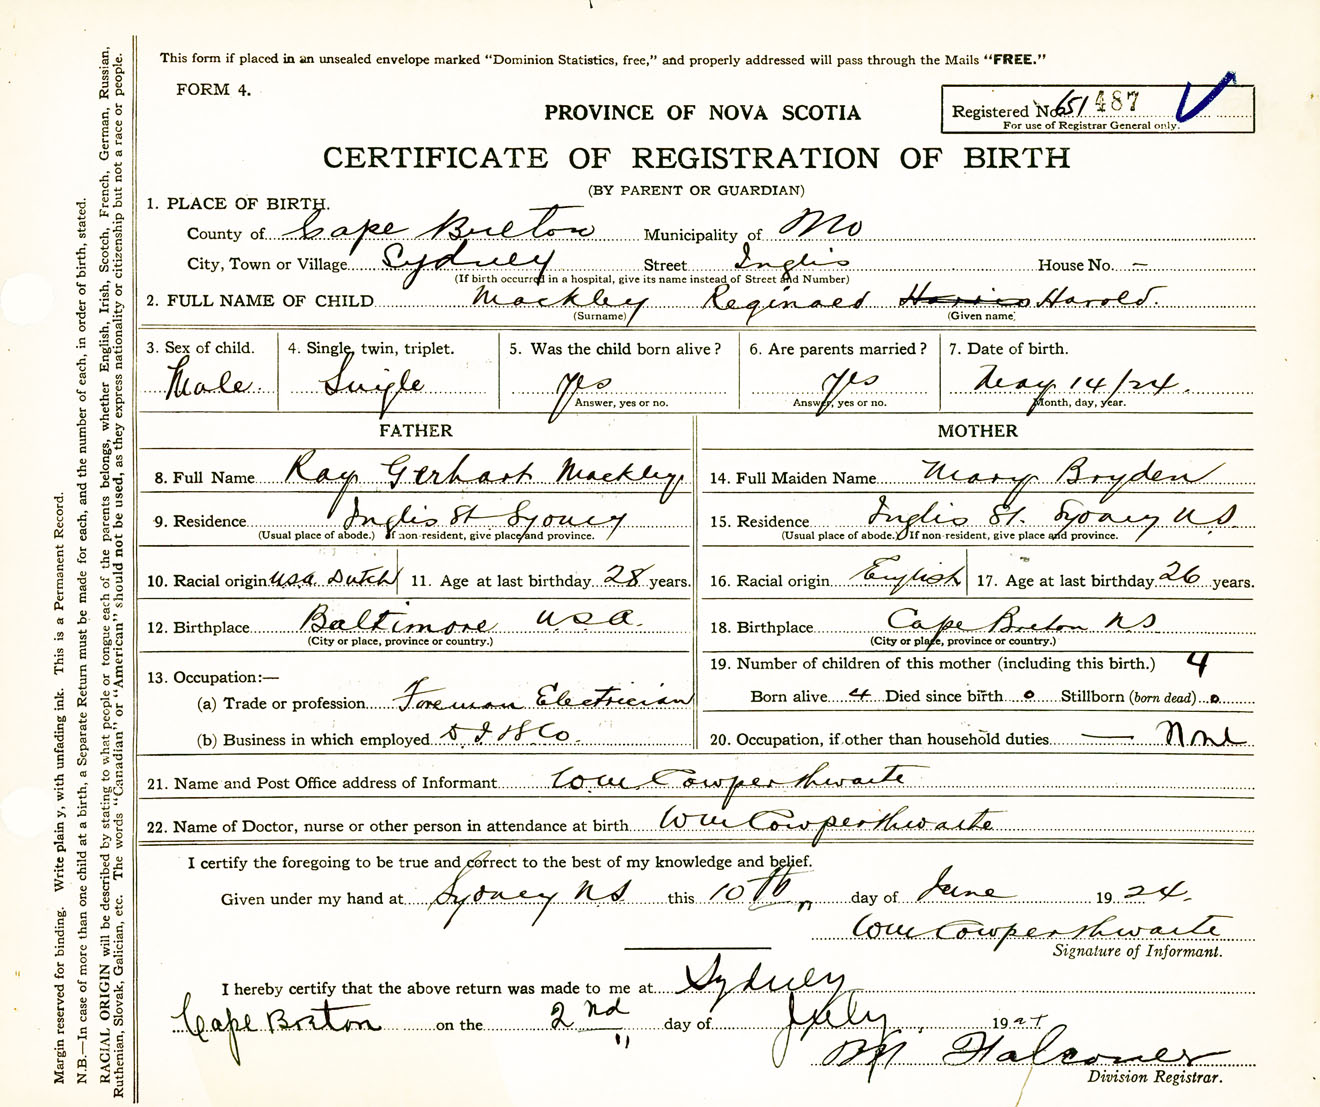 This form if placed in an unsealed envelope marked "Dominion Statistics, free," and properly addressed will pass through the Mails "FREE."
FORM 4.
PROVINCE OF NOVA SCOTIA
Registered No. 651 487
For use of Registrar General only.
CERTIFICATE OF REGISTRATION OF BIRTH
(BY PARENT OR GUARDIAN)
1. PLACE OF BIRTH.
County of Cape Breton Municipality of
City, Town or Village Sydney Street Inglis House No. —
(If birth occurred in a hospital, give its name instead of Street and Number)
2. FULL NAME OF CHILD Mackley Reginald Harris Harold.
(Surname) (Given name)
3. Sex of child. 4. Single, twin, triplet. 5. Was the child born alive? 6. Are parents married? 7. Date of birth.
Male. Single Yes Yes May 14/24.
Answer, yes or no. Answer, yes or no. Month, day, year.
FATHER MOTHER
8. Full Name Ray Gerhart Mackley. 14. Full Maiden Name Mary Bryden
9. Residence Inglis St Sydney 15. Residence Inglis St. Sydney N.S.
(Usual place of abode.) If non-resident, give place and province. (Usual place of abode.) If non-resident, give place and province.
10. Racial origin U.S.A. Dutch 11. Age at last birthday 28 years. 16. Racial origin English 17. Age at last birthday 26 years.
12. Birthplace Baltimore U.S.A. 18. Birthplace Cape Breton N.S
(City or place, province or country.) (City or place, province or country.)
19. Number of children of this mother (including this birth.) 4
13. Occupation:—
(a) Trade or profession Foreman Electrician Born alive 4 Died since birth 0 Stillborn (born dead) 0
(b) Business in which employed D I S Co. 20. Occupation, if other than household duties — None
21. Name and Post Office address of Informant Wm Cowperthwaite
22. Name of Doctor, nurse or other person in attendance at birth Wm Cowperthwaite
I certify the foregoing to be true and correct to the best of my knowledge and belief.
Given under my hand at Sydney N S this 10th day of June 1924.
Wm Cowperthwaite
Signature of Informant.
I hereby certify that the above return was made to me at Sydney
Cape Breton on the 2nd day of July 1924
Falconer
Division Registrar.
Margin reserved for binding. Write plainly, with unfading ink. This is a Permanent Record.
N.B.—In case of more than one child at a birth, a Separate Return must be made for each, and the number of each, in order of birth, stated.
RACIAL ORIGIN will be described by stating to what people or tongue each of the parents belongs, whether English, Irish, Scotch, French, German, Russian,
Ruthenian, Slovak, Galician, etc. The words "Canadian" or "American" should not be used, as they express nationality or citizenship but not a race or people.